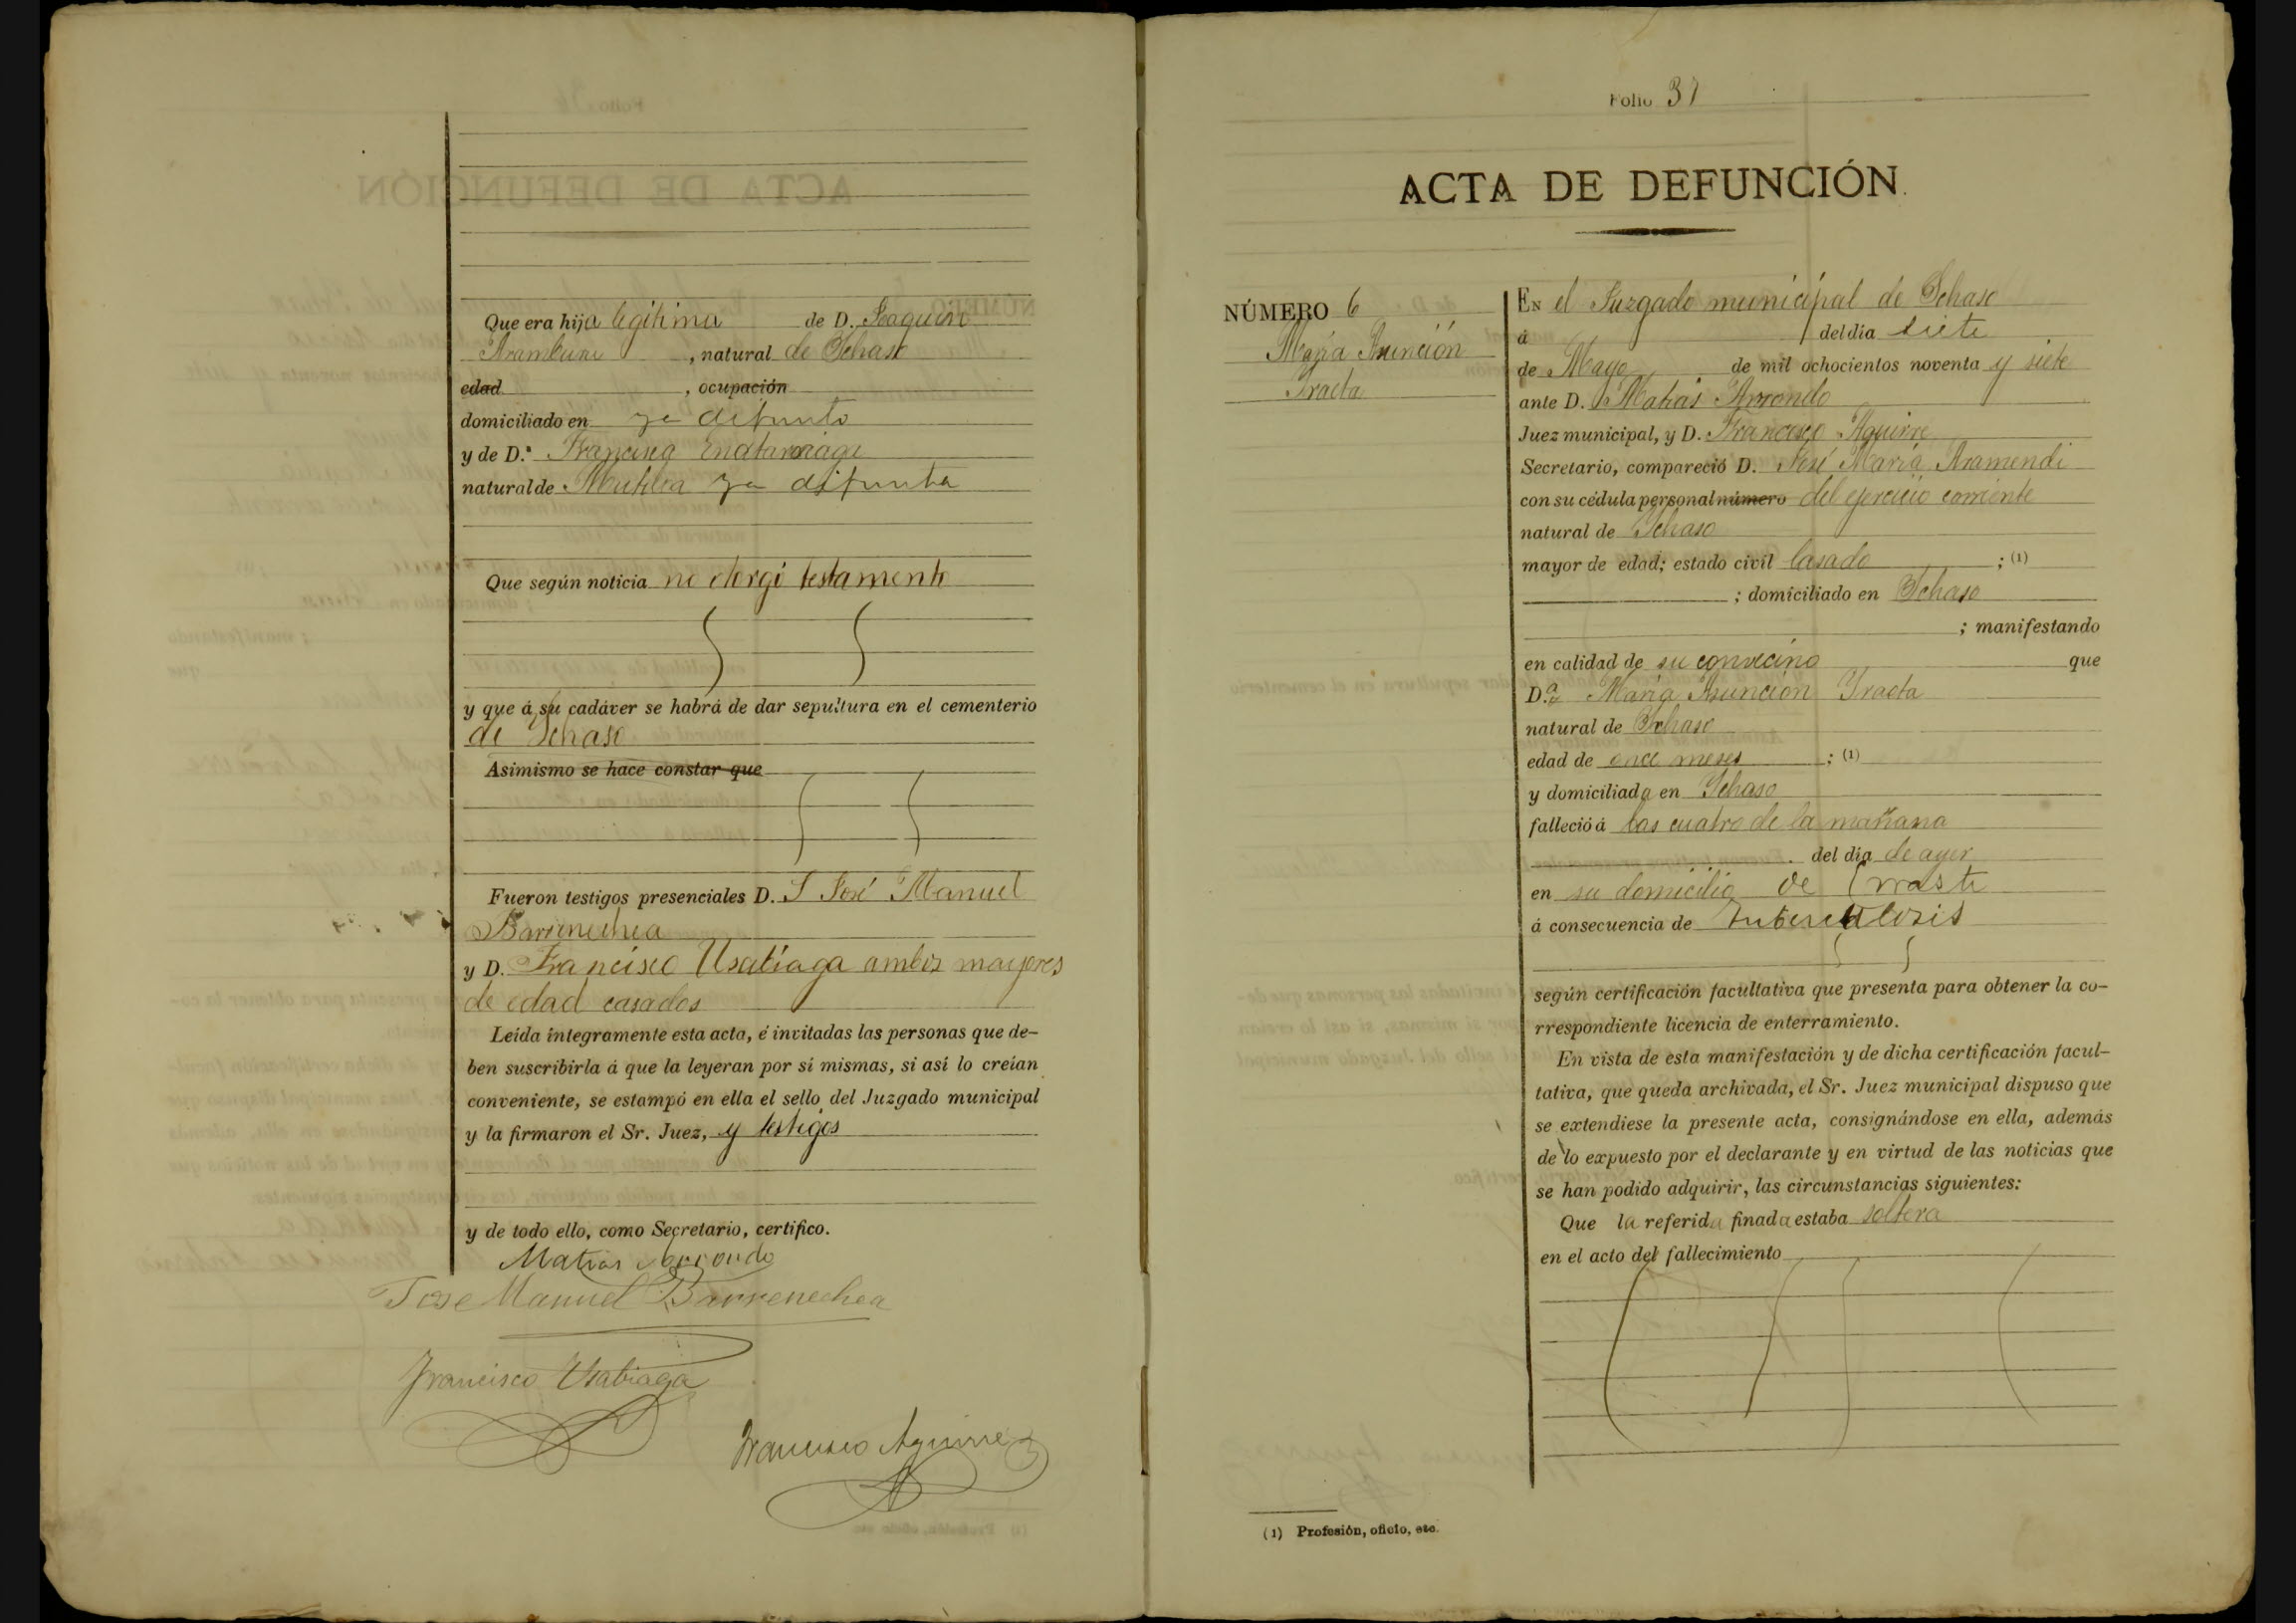 Que era hija legitima de D. Joaquin
Aramburu, natural de Ichaso
edad, ocupación
domiciliado en ya difunto
y de D.ª Francisca
natural de Mutiloa ya difunta
Que según noticia no otorgó testamento
y que á su cadáver se habrá de dar sepultura en el cementerio
de Ichaso
Asimismo se hace constar que
Fueron testigos presenciales D. José Manuel
Barrenechea
y D. Francisco Usabiaga ambos mayores
de edad casados
Leída íntegramente esta acta, é invitadas las personas que de-
ben suscribirla á que la leyeran por sí mismas, si así lo creían
conveniente, se estampó en ella el sello del Juzgado municipal
y la firmaron el Sr. Juez, y testigos
y de todo ello, como Secretario, certifico.
Matias Arrondo
Jose Manuel Barrenechea
Francisco Usabiaga
Francisco Aguirre
Folio 37
ACTA DE DEFUNCIÓN.
NÚMERO 6
Maria Asunción
Iraeta
EN el Juzgado municipal de Ichaso
á del día siete
de Mayo de mil ochocientos noventa y siete
ante D. Matias Arrondo
Juez municipal, y D. Francisco Aguirre
Secretario, compareció D. José María Aramendi
con su cédula personal número del ejercicio corriente
natural de Ichaso
mayor de edad; estado civil Casado ; (1)
; domiciliado en Ichaso
; manifestando
en calidad de su convecino que
D.ª Maria Asunción Iraeta
natural de Ichaso
edad de once meses ; (1)
y domiciliada en Ichaso
falleció á las cuatro de la mañana
del día de ayer
en su domicilio de
á consecuencia de Tuberculosis
según certificación facultativa que presenta para obtener la co-
rrespondiente licencia de enterramiento.
En vista de esta manifestación y de dicha certificación facul-
tativa, que queda archivada, el Sr. Juez municipal dispuso que
se extendiese la presente acta, consignándose en ella, además
de lo expuesto por el declarante y en virtud de las noticias que
se han podido adquirir, las circunstancias siguientes:
Que la referida finada estaba soltera
en el acto del fallecimiento
(1) Profesión, oficio, etc.